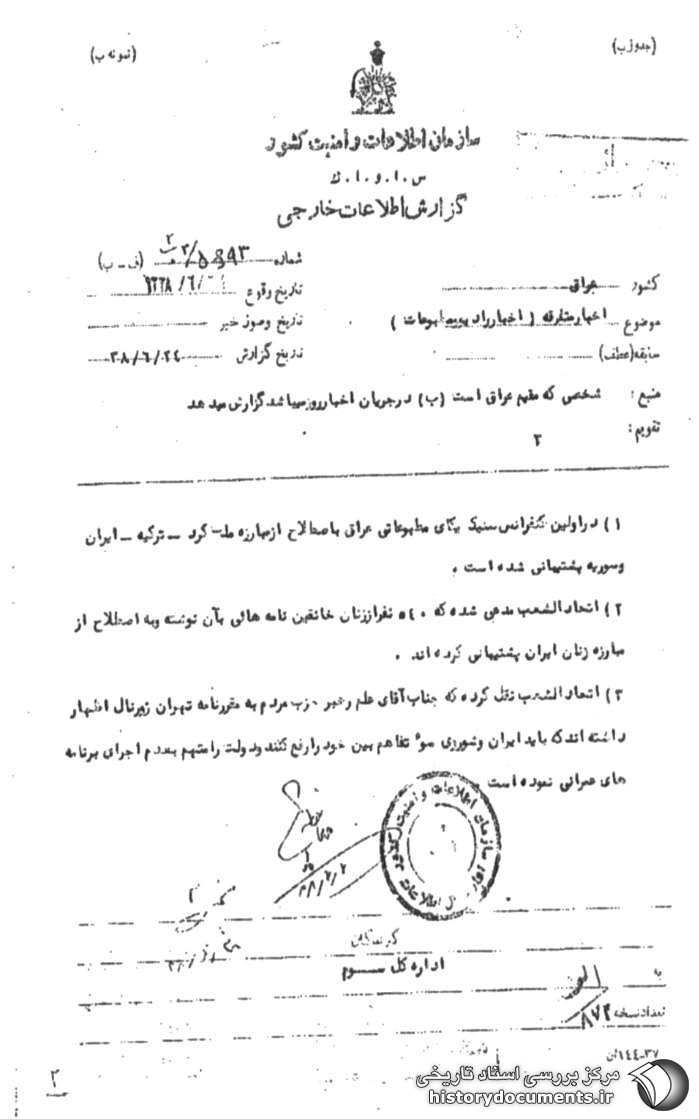 (جدول ب)
(نمونه ب)
سازمان اطلاعات و امنیت کشور
س . ا . و . ا . ک
گزارش اطلاعات خارجی
شماره ۵۶۹۳/۲ (ف - ب)
کشور عراق
تاریخ وقوع ۱۳۳۸/۶/
موضوع اخبار متفرقه ( اخبار رادیو و مطبوعات )
تاریخ وصول خبر
سابقه (عطف)
تاریخ گزارش ۳۸/۶/۲۴
منبع : شخصی که مقیم عراق است (ب) در جریان اخبار روز میباشد گزارش میدهد
تقویم :
۲
۱) در اولین کنفرانس سندیکای مطبوعاتی عراق باصطلاح از مبارزه ملت کرد – ترکیه – ایران
وسوریه پشتیبانی شده است .
۲) اتحاد الشعب مدعی شده که ۵۴۰ نفر از زنان خانقین نامه هائی بآن نوشته وبه اصطلاح از
مبارزه زنان ایران پشتیبانی کرده اند .
۳) اتحاد الشعب نقل کرده که جناب آقای علم رهبر حزب مردم به مخبر روزنامه تهران ژورنال اظهار
داشته اند که باید ایران وشوروی سوء تفاهم بین خود را رفع کنند ودولت را متهم بعدم اجرای برنامه
های عمرانی نموده است
سازمان اطلاعات و امنیت کشور
گیرندگان
اداره کل سوم
به
تعداد نسخه
۸۷۲
۳۷-۱۴۴ ان
۲
مرکز بررسی اسناد تاریخی
historydocuments.ir